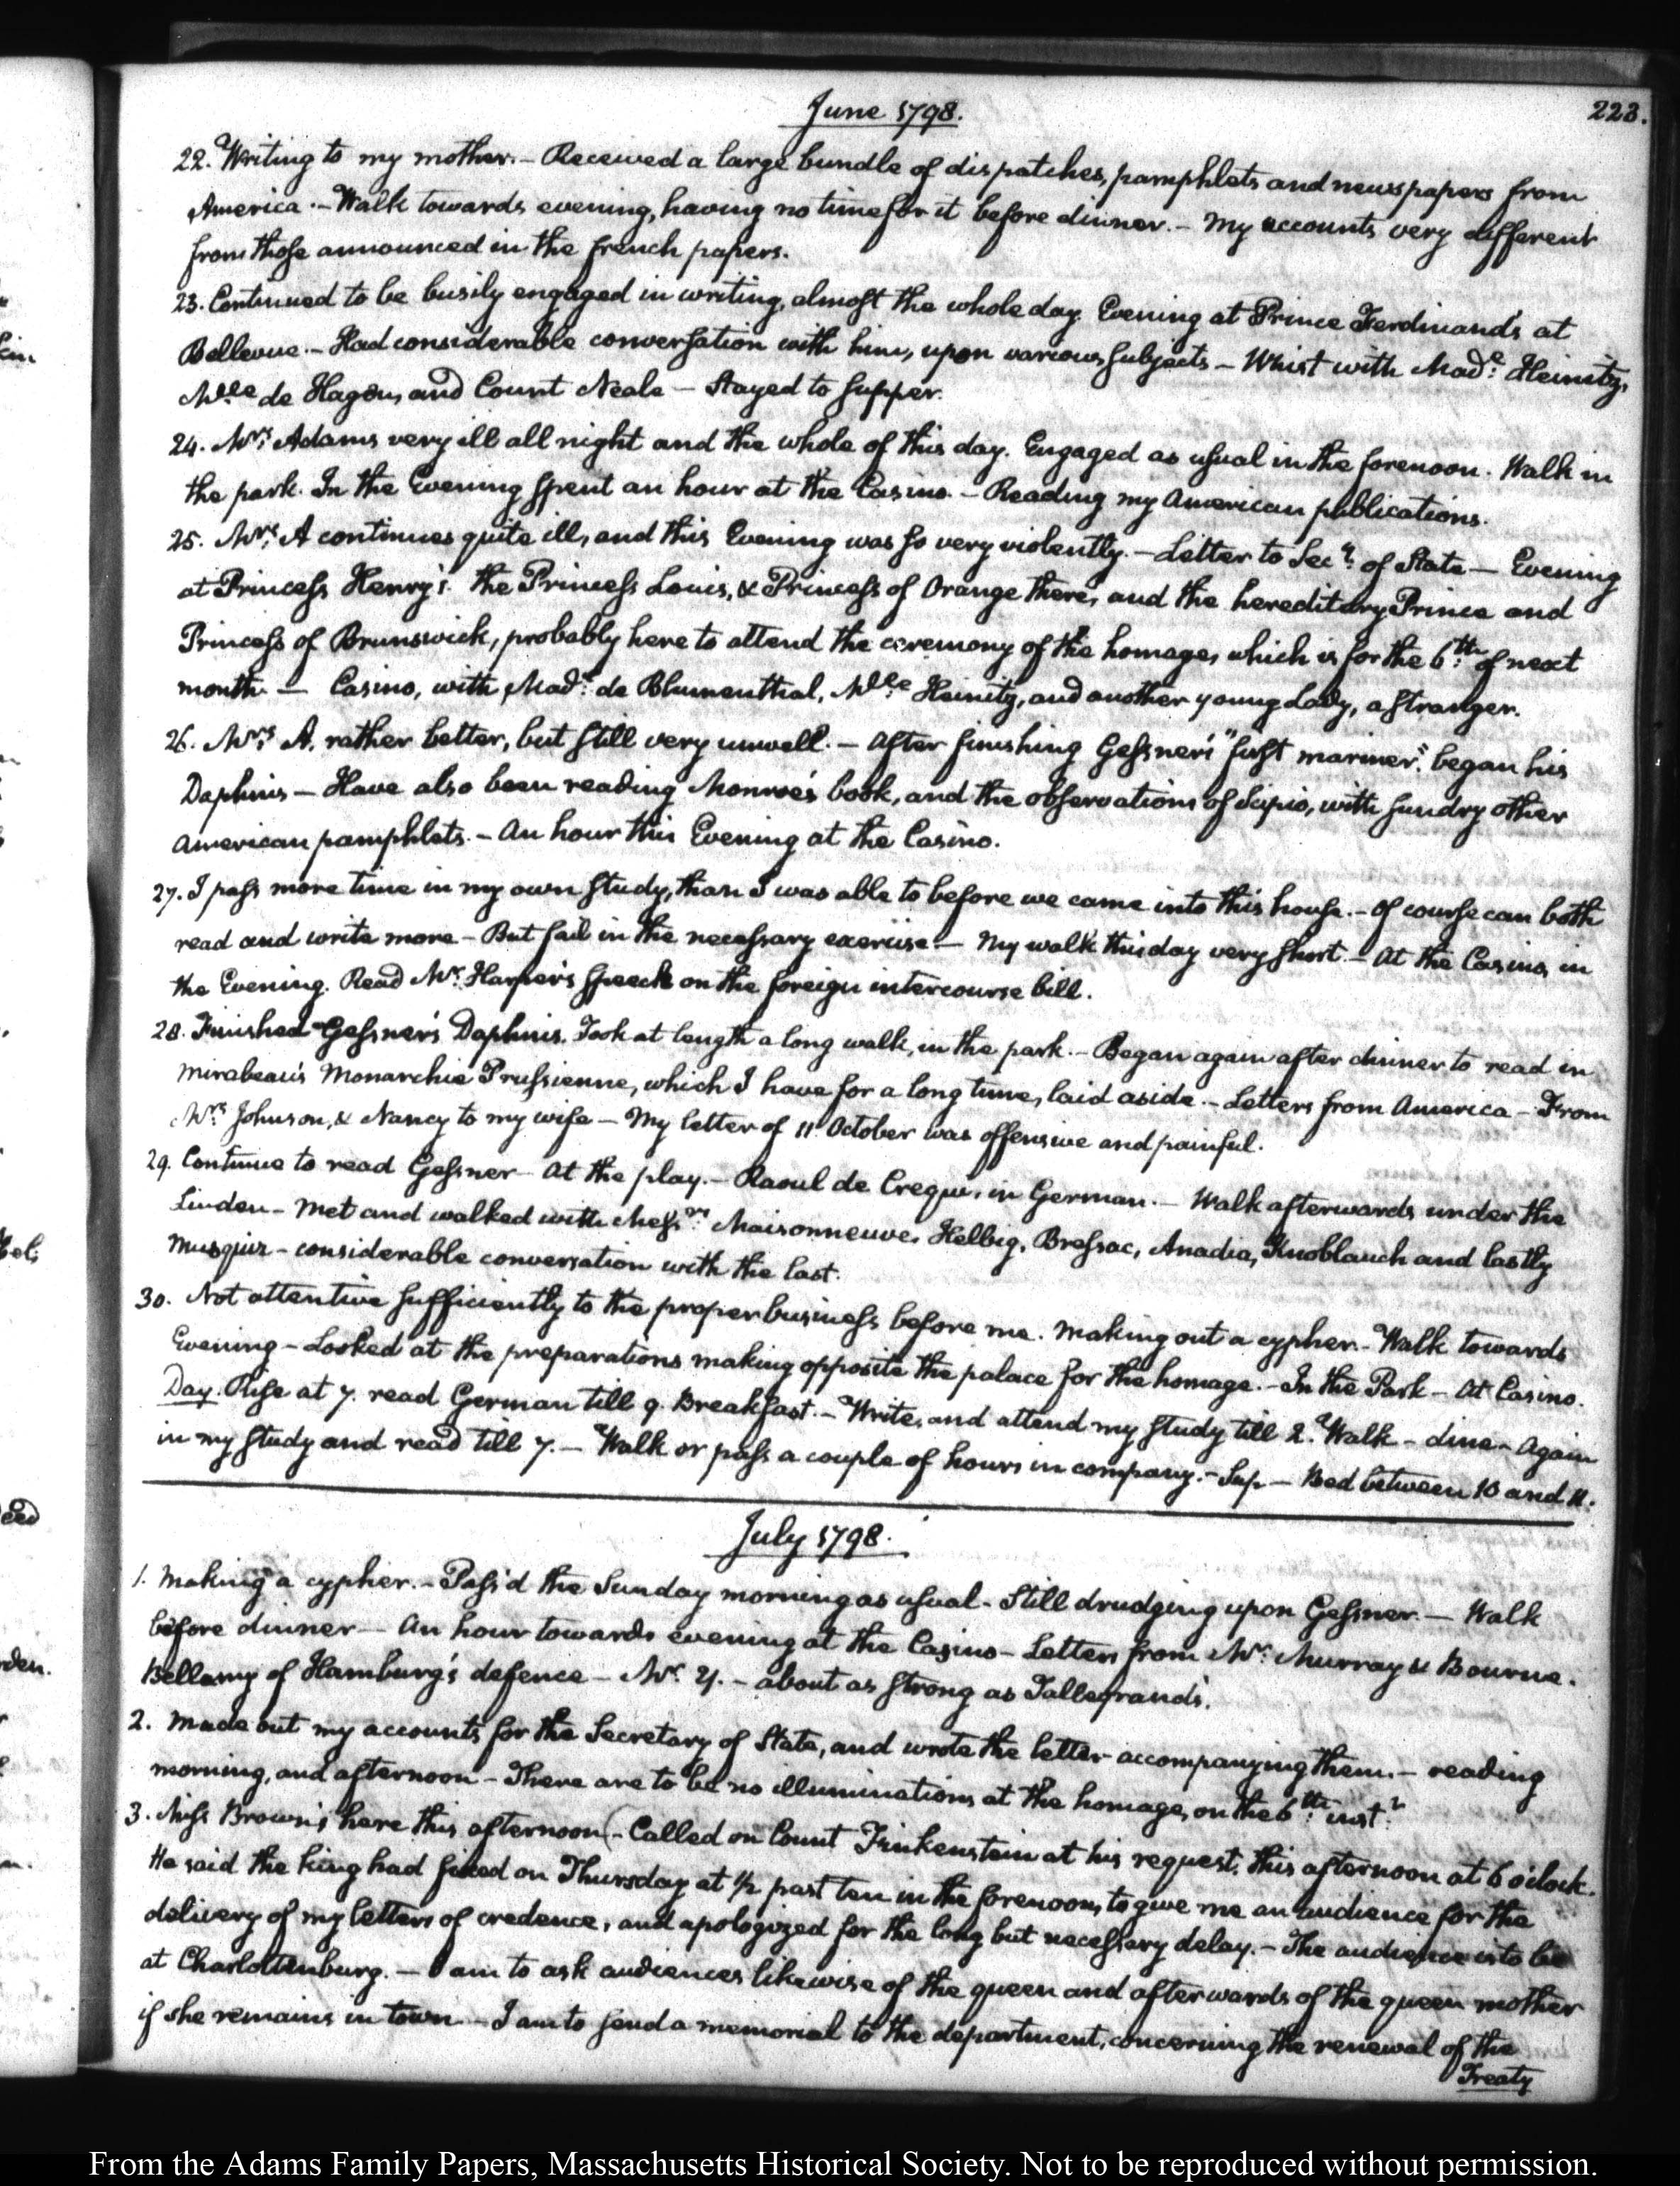 June 1798.
223.
22. Writing to my mother. – Received a large bundle of dispatches, pamphlets and newspapers from
America. – Walk towards evening, having no time for it before dinner. – My accounts very different
from those announced in the french papers.
23. Continued to be busily engaged in writing, almost the whole day. Evening at Prince Ferdinand's at
Bellevue. – Had considerable conversation with him, upon various subjects – Whist with Made. Heinitz,
Mlle de Hagen, and Count Neale – Stayed to supper.
24. Mrs. Adams very ill all night and the whole of this day. Engaged as usual in the forenoon. Walk in
the park. In the Evening spent an hour at the Casino. – Reading my American publications.
25. Mrs. A continues quite ill, and this Evening was so very violently. – Letter to Secy. of State – Evening
at Princess Henry's. the Princess Louis, & Princess of Orange there, and the hereditary Prince and
Princess of Brunswick, probably here to attend the ceremony of the homage, which is for the 6th. of next
month – Casino, with Made. de Blumenthal, Mlle. Heinitz, and another young Lady, a stranger.
26. Mrs. A. rather better, but still very unwell. – After finishing Gessner's "first mariner", began his
Daphnis – Have also been reading Monroe's book, and the observations of Scipio, with sundry other
American pamphlets. – An hour this Evening at the Casino.
27. I pass more time in my own study, than I was able to before we came into this house. – Of course can both
read and write more – But fail in the necessary exercise – My walk this day very short. – At the Casino, in
the Evening. Read Mr. Harper's speech on the foreign intercourse bill.
28. Finished Gessner's Daphnis. Took at length a long walk, in the park. – Began again after dinner to read in
Mirabeau's Monarchie Prussienne, which I have for a long time, laid aside. – Letters from America – From
Mrs. Johnson, & Nancy to my wife – My letter of 11 October was offensive and painful.
29. Continue to read Gessner – At the play. – Raoul de Crequi, in German. – Walk afterwards under the
Linden – Met and walked with Messrs. Maisonneuve, Helbig, Bressac, Anadia, Knoblauch and lastly
Musquiz – considerable conversation with the last.
30. Not attentive sufficiently to the proper business before me. Making out a cypher. – Walk towards
Evening – Looked at the preparations making opposite the palace for the homage. – In the Park – At Casino.
Day. Rise at 7. read German till 9. Breakfast. – Write, and attend my study till 2. Walk – dine – Again
in my study and read till 7. – Walk or pass a couple of hours in company. – Sup – Bed between 10 and 11.
July 1798.
1. Making a cypher. – Pass'd the Sunday morning as usual – Still drudging upon Gessner. – Walk
before dinner – An hour towards evening at the Casino – Letters from Mr. Murray & Bourne.
Bellamy of Hamburg's defence – Mr. Y. – about as strong as Tallegrand's.
2. Made out my accounts for the Secretary of State, and wrote the letter accompanying them. – reading
morning, and afternoon – There are to be no illuminations at the homage, on the 6th. inst.
3. Miss Brown's here this afternoon (– Called on Count Finkenstein at his request, this afternoon at 6 o'clock.
He said the king had fixed on Thursday at 1/2 past ten in the forenoon, to give me an audience for the
delivery of my letters of credence, and apologized for the long but necessary delay. – The audience is to be
at Charlottenburg. – I am to ask audiences likewise of the queen and afterwards of the queen mother
if she remains in town – I am to send a memorial to the department, concerning the renewal of the
Treaty
From the Adams Family Papers, Massachusetts Historical Society. Not to be reproduced without permission.